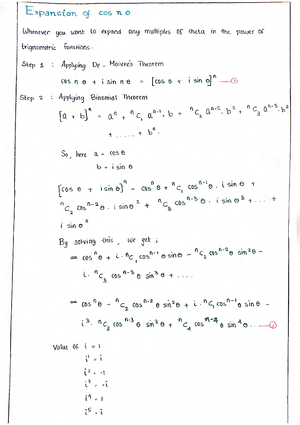 Expansion of cos nθ
Whenever you want to expand any multiples of theta in the power of
trignometric functions.
Step 1 : Applying De-Moivre's Theorem
cos nθ + i sin nθ = [cos θ + i sin θ]ⁿ —①
Step 2 : Applying Binomial Theorem
[a + b]ⁿ = aⁿ + ⁿC₁ aⁿ⁻¹ · b + ⁿC₂ aⁿ⁻² · b² + ⁿC₃ aⁿ⁻³ · b³
+ ..... + bⁿ.
So, here a = cos θ
b = i sin θ
[cos θ + i sin θ]ⁿ = cosⁿ θ + ⁿC₁ cosⁿ⁻¹ θ . i sin θ +
ⁿC₂ cosⁿ⁻² θ . i sin θ² + ⁿC₃ cosⁿ⁻³ θ . i sin θ³ + ... +
i sin θⁿ
By solving this, we get ;
= cosⁿ θ + i . ⁿC₁ cosⁿ⁻¹ θ sin θ - ⁿC₂ cosⁿ⁻² θ sin² θ -
i . ⁿC₃ cosⁿ⁻³ θ sin³ θ + ....
= cosⁿ θ - ⁿC₂ cosⁿ⁻² θ sin² θ + i . ⁿC₁ cosⁿ⁻¹ θ sin θ -
i³ . ⁿC₃ cosⁿ⁻³ θ sin³ θ + ⁿC₄ cosⁿ⁻⁴ θ sin⁴ θ .. —②
Value of i = 1
i¹ = i
i² = -1
i³ = -i
i⁴ = 1
i⁵ = i